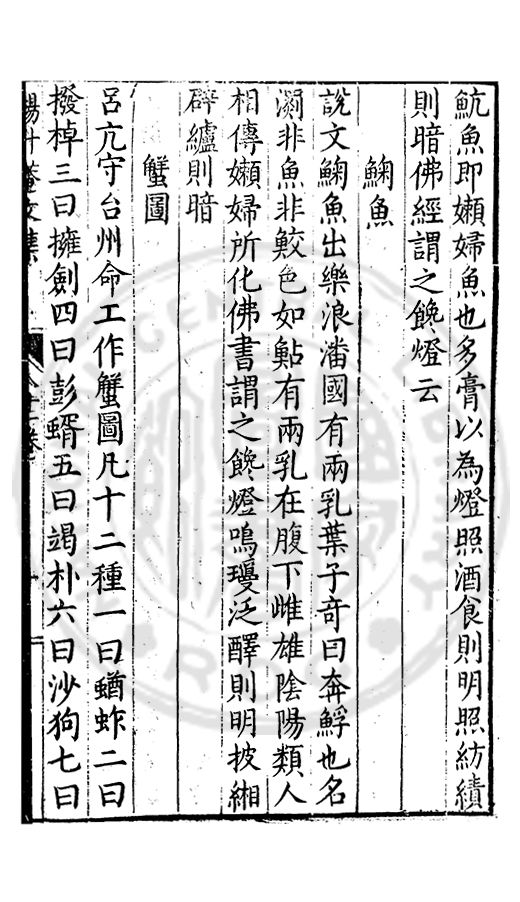 魧魚即嬾婦魚也多膏以為燈照酒食則明照紡績
則暗佛經謂之饞燈云
鯛魚
說文鯛魚出樂浪潘國有兩乳葉子奇曰奔䱐也名
瀱非魚非鮫色如鮎有兩乳在腹下雌雄陰陽類人
相傳嬾婦所化佛書謂之饞燈鳴瓊泛醳則明披緗
辟纑則暗
蟹圖
呂亢守台州命工作蟹圖凡十二種一曰蝤蛑二曰
撥棹三曰擁劍四曰彭蜎五曰竭朴六曰沙狗七曰
楊升菴文集